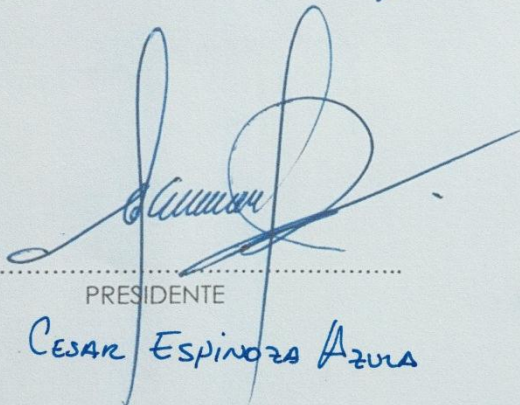 PRESIDENTE
CESAR ESPINOZA AZULA